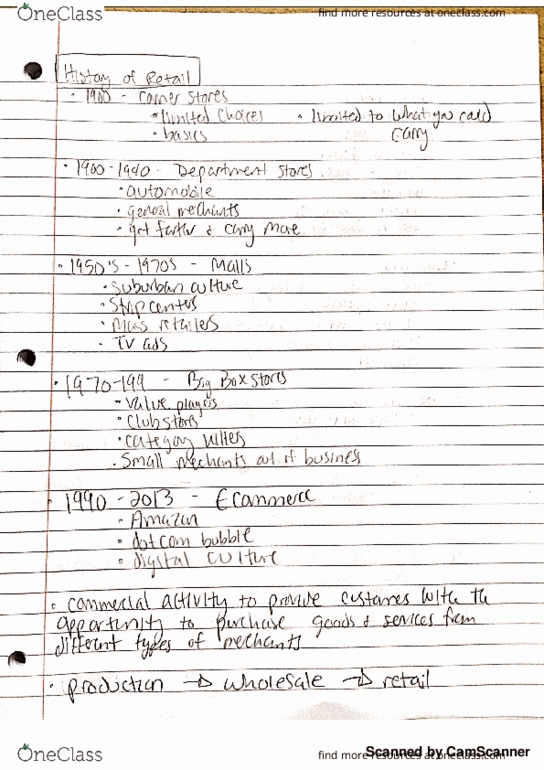 OneClass
find more resources at oneclass.com
History of Retail
• 1900 - Corner Stores
• limited Choices • limited to what you could
• basics carry
• 1900-1940 - Department Stores
• automobile
• general merchants
• get farther & carry more
• 1950's - 1970s - Malls
• Suburban culture
• Strip centers
• Mass retailers
- TV ads
• 1970-199 - Big Box Stores
- Value players
• Club stores
• category killers
• Small merchants out of business
• 1990 - 2013 - Ecommerce
• Amazon
• dot com bubble
• digital culture
• commercial activity to provide customers with the
opportunity to purchase goods & services from
different types of merchants
• production → wholesale → retail
OneClass
find more resources at oneclass.com
Scanned by CamScanner